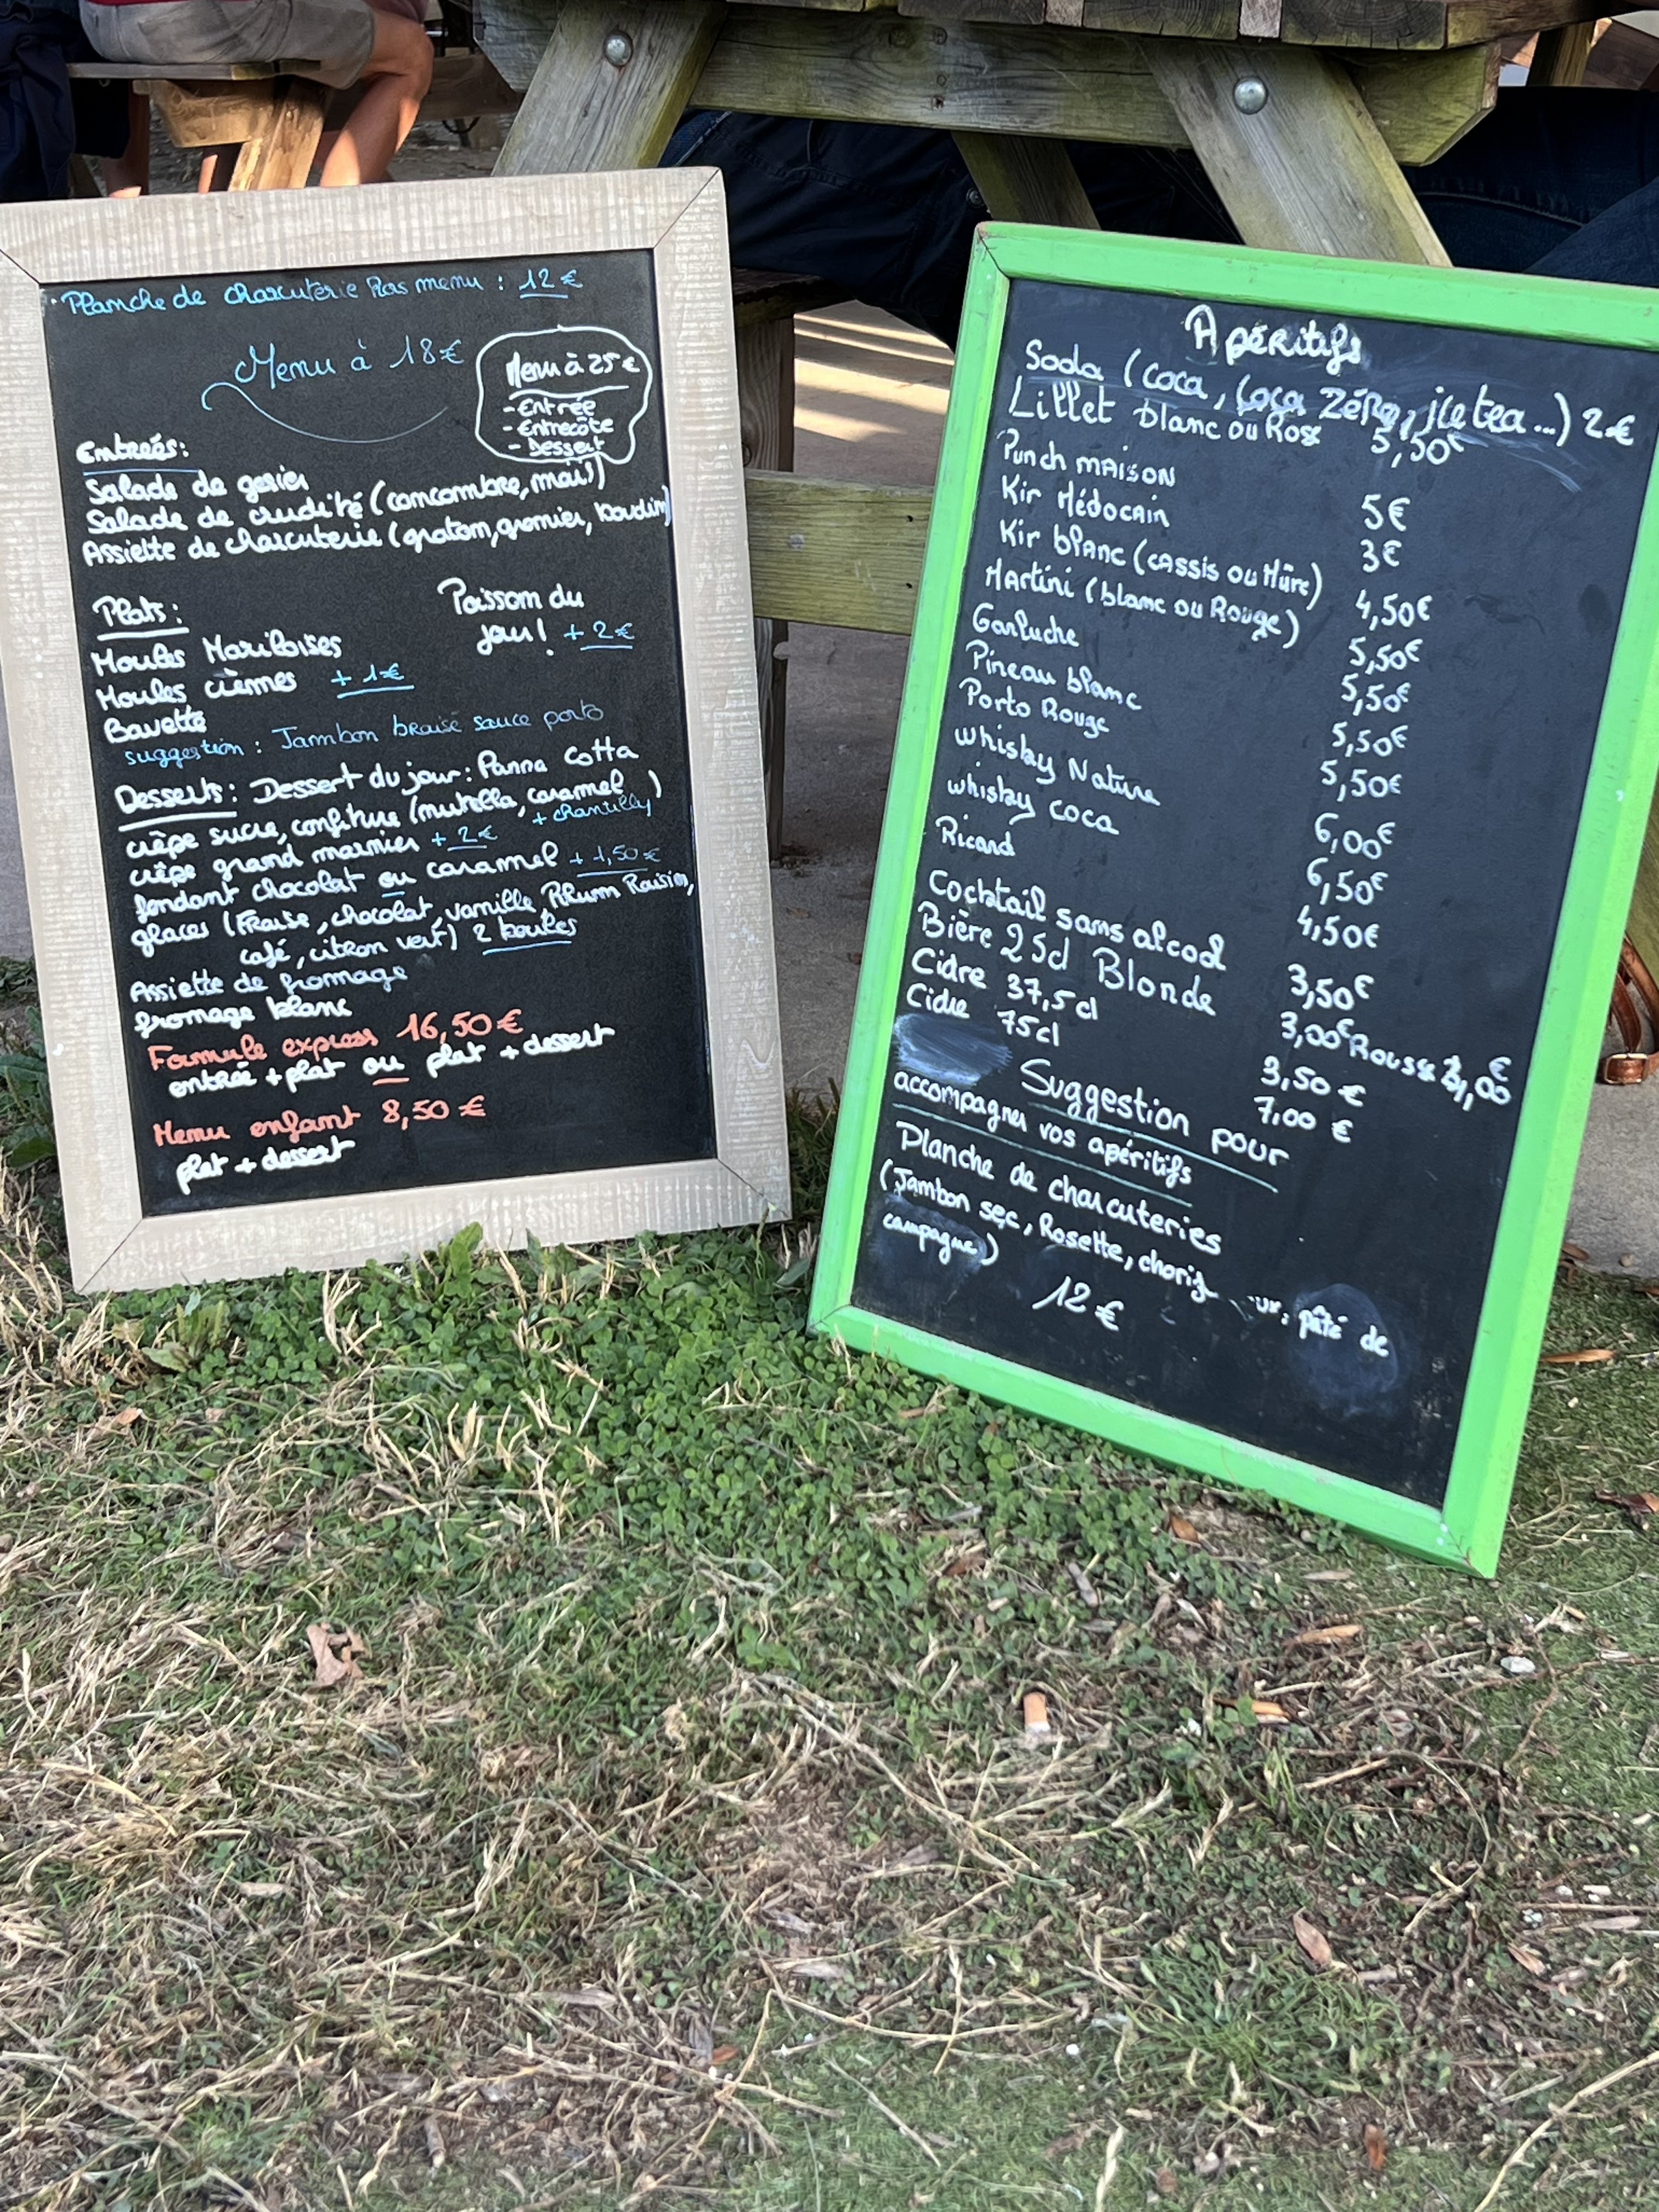 Planche de charcuterie hors menu : 12 €
Menu à 18 €
Menu à 25 €
- Entrée
- Entrecôte
- Dessert
Entreés :
Salade de gesier
Salade de crudité (concombre, maïs)
Assiette de charcuterie (graton, grenier, boudin)
Plats :
Poisson du
jour ! + 2 €
Moules Mariloises
Moules crèmes + 1 €
Bavette
suggestion : Jambon braisé sauce porto
Desserts : Dessert du jour : Panna Cotta
crêpe sucre, confiture (nutella, caramel)
+ chantilly
crêpe grand marnier + 2 €
fondant chocolat ou caramel + 1,50 €
glaces (Fraise, chocolat, vanille Rhum Raisin,
café, citron vert) 2 boules
Assiette de fromage
fromage blanc
Formule express 16,50 €
entrée + plat ou plat + dessert
Menu enfant 8,50 €
plat + dessert
Apéritifs
Soda (coca, coca zéro, ice tea...) 2 €
Lillet blanc ou Rosé 5,50€
Punch MAISON 5€
Kir Médocain 3€
Kir blanc (cassis ou Mûre) 4,50€
Martini (blanc ou Rouge) 5,50€
Garluche 5,50€
Pineau blanc 5,50€
Porto Rouge 5,50€
whisky Nature 6,00€
whisky coca 6,50€
Ricard 4,50€
Cocktail sans alcool 3,50€
Bière 25cl Blonde 3,00€ Rousse 4,00 €
Cidre 37,5cl 3,50 €
Cidre 75cl 7,00 €
Suggestion pour
accompagner vos apéritifs
Planche de charcuteries
(Jambon sec, Rosette, pâté de
campagne)
12 €